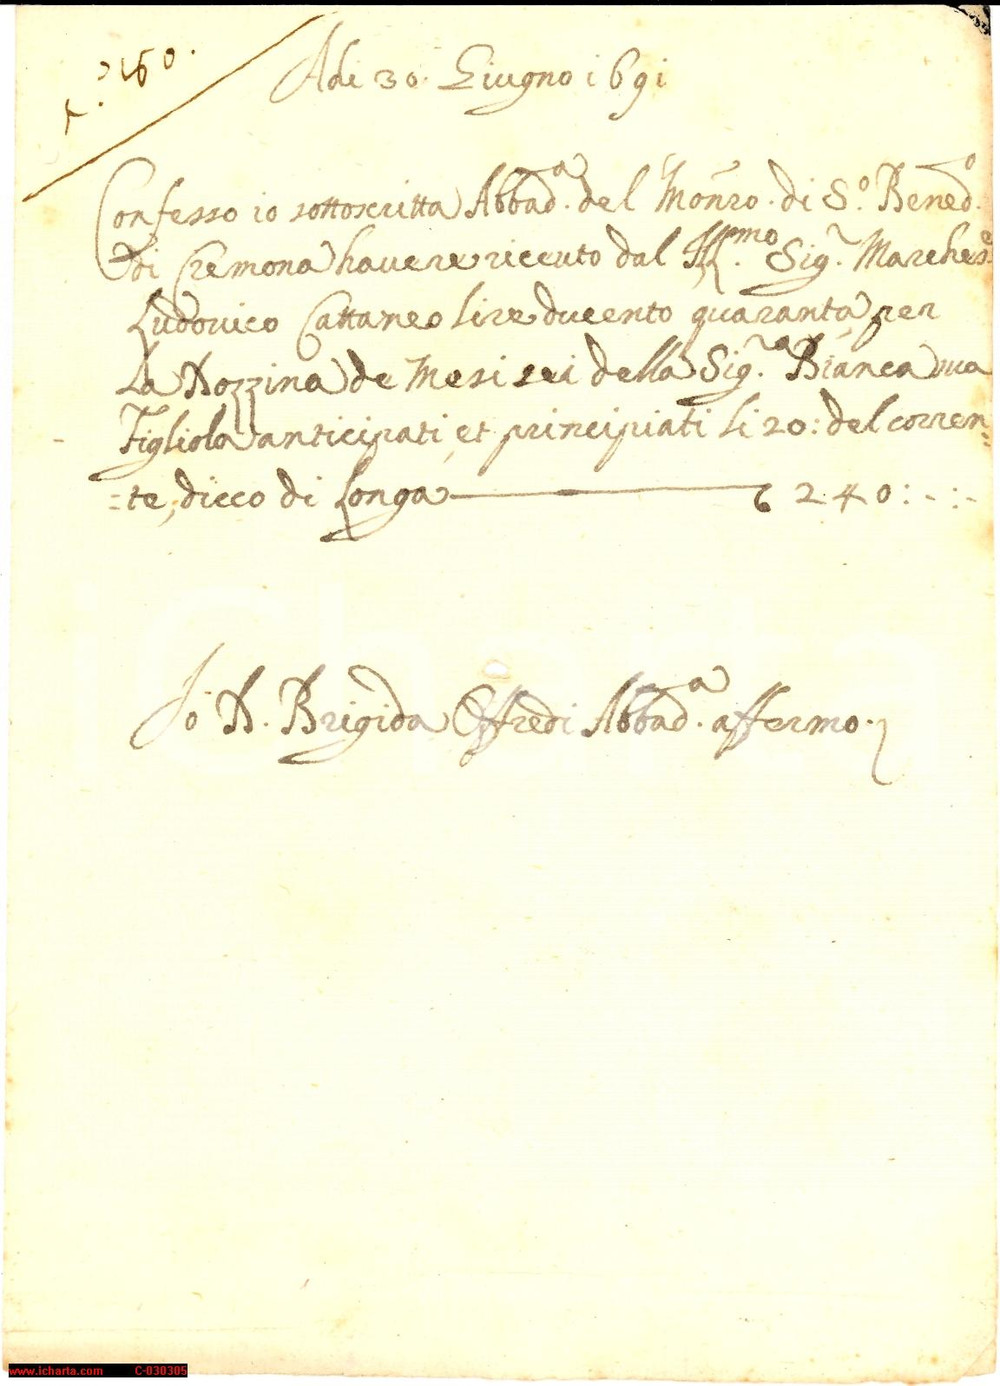 Adi 30. Giugno i69i
Confesso io sottoscritta Abbad.a del Monro. di S.o Bened.o
Di Cremona havere riceuto dal Ill.mo Sig.r Marches.e
Ludovico Cattaneo lire ducento quaranta per
La Dozzina de Mesi sei della Sig.ra Bianca sua
Figliola anticipati, et principiati li 20: del corren=
=te, dicco di Longa 240:-:-
Io D. Brigida Offredi Abbad.a affermo.
www.icharta.com C-030305